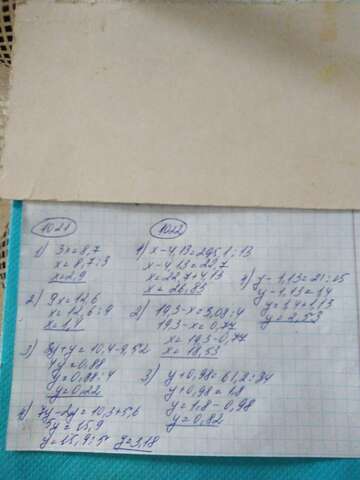 1021
1) 3x=8,7
x=8,7:3
x=2,9
2) 9x=12,6
x=12,6:9
x=1,4
3) 3y+y=10,4-9,52
4y=0,88
y=0,88:4
y=0,22
4) 7y-2y=10,3+5,6
5y=15,9
y=15,9:5 y=3,18
1022
1) x-4,13=295,1:13
x-4,13=22,7
x=22,7+4,13
x=26,83
2) 19,3-x=3,08:4
19,3-x=0,77
x=19,3-0,77
x=18,53
3) y+0,98=61,2:34
y+0,98=1,8
y=1,8-0,98
y=0,82
4) y-1,13=21:15
y-1,13=1,4
y=1,4+1,13
y=2,53